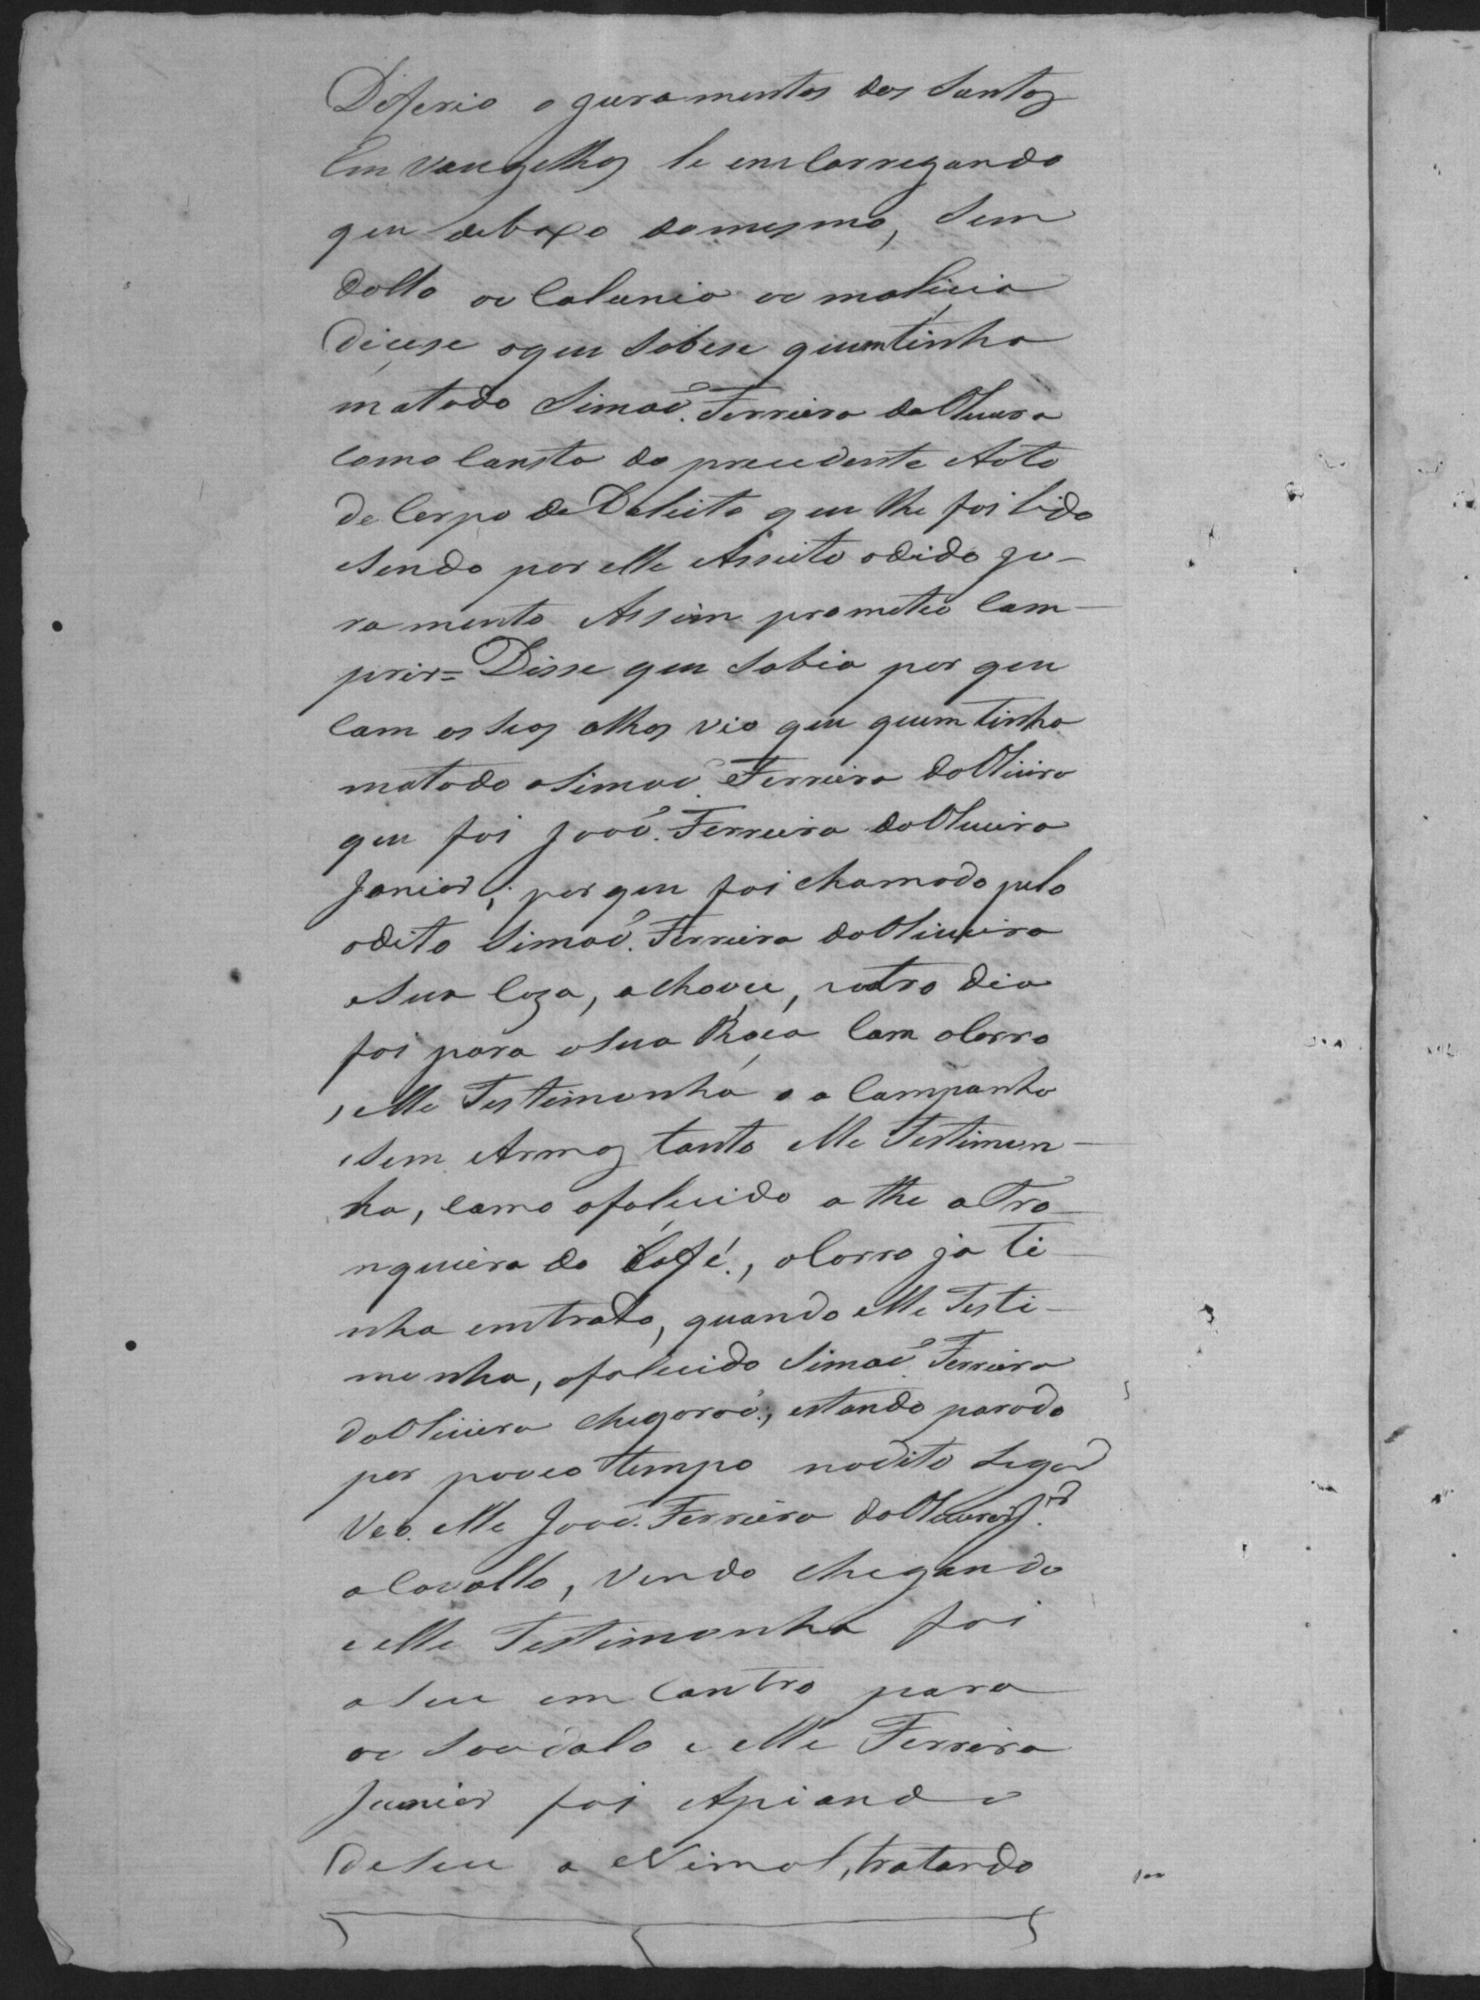 Diferio o guramentos dos Santos
Emvangelhos le emcarregando
que debaxo domesmo, Sem
dollo ou Calunia ou malicia
diçese oque Sobese quemtinha
matado Simaõ Ferreira daOliveira
Como Consta do precedente Aoto
de Corpo de Deleito que lhe foi lido
esendo por elle Asseito odido gu-
ramento Assim prometeo Com-
prir= Disse que Sabia por que
Com os Seos olhos vio que quem tinha
matado oSimaõ Ferreira daOliveira
que foi Joaõ Ferreira daOliveira
Jonior; por que foi chamado pelo
odito Simaõ Ferreira daOliveira
eSua Coza, achouce, outro dia
foi para oSua Roça Com oCorro
, elle Testimonha o a Companho
eSem Armas tanto elle Testimon-
ha, Como ofalecido athe aTro-
nqueira do Cofé, oCorro ja ti-
nha emtrado, quando elle Testi-
monha, ofalecido Simaõ Ferreira
daOliveira chegoroõ; estando parado
por pouco tempo nodito Logar
Veo elle Joaõ Ferreira daOliveira Jor
aCavallo, Vendo chegando
eelle Testimonha foi
aSeu em Contro para
ou Soudalo e elle Ferreira
Junior foi Apiando
deSeu a Nimal, tratando